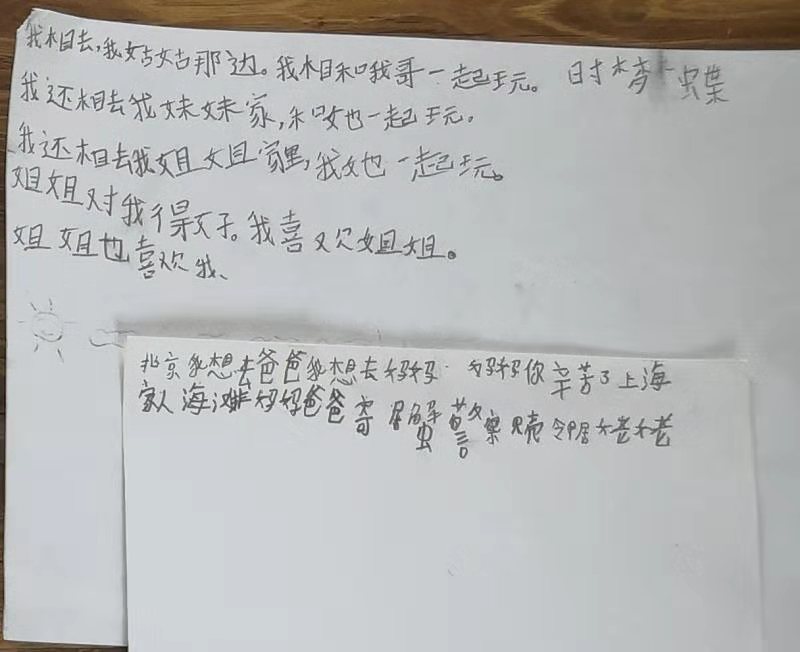 我相去,我姑姑那边。我相和哦哥一起玩。 时 蝶
我还相去我妹妹家,和她一起玩,
我还相去我姐姐家里,我她一起玩。
姐姐对我得好。我喜欢姐姐。
姐姐也喜欢我、
北京我想去爸爸我想去妈妈 妈妈你辛苦了上海
家人海滩妈妈爸爸寄 蟹警察 邻居姥姥